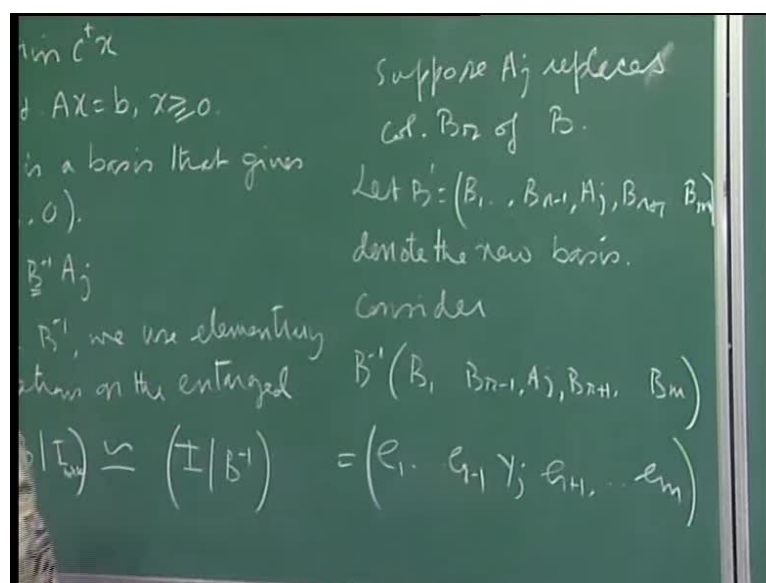 min cᵗx
Ax=b, x≥0.
is a basis that gives
., 0).
B⁻¹Aj
B⁻¹, we use elementary
on the entarged
| I_mxm) ≃ (I | B⁻¹)
Suppose Aj replaces
col. Br of B.
Let B'=(B₁.., Br-1, Aj, Br+1, Bm)
denote the new basis.
Consider
B⁻¹(B₁ Br-1, Aj, Br+1, Bm)
=(e₁.. er-1 Yj er+1,... em)